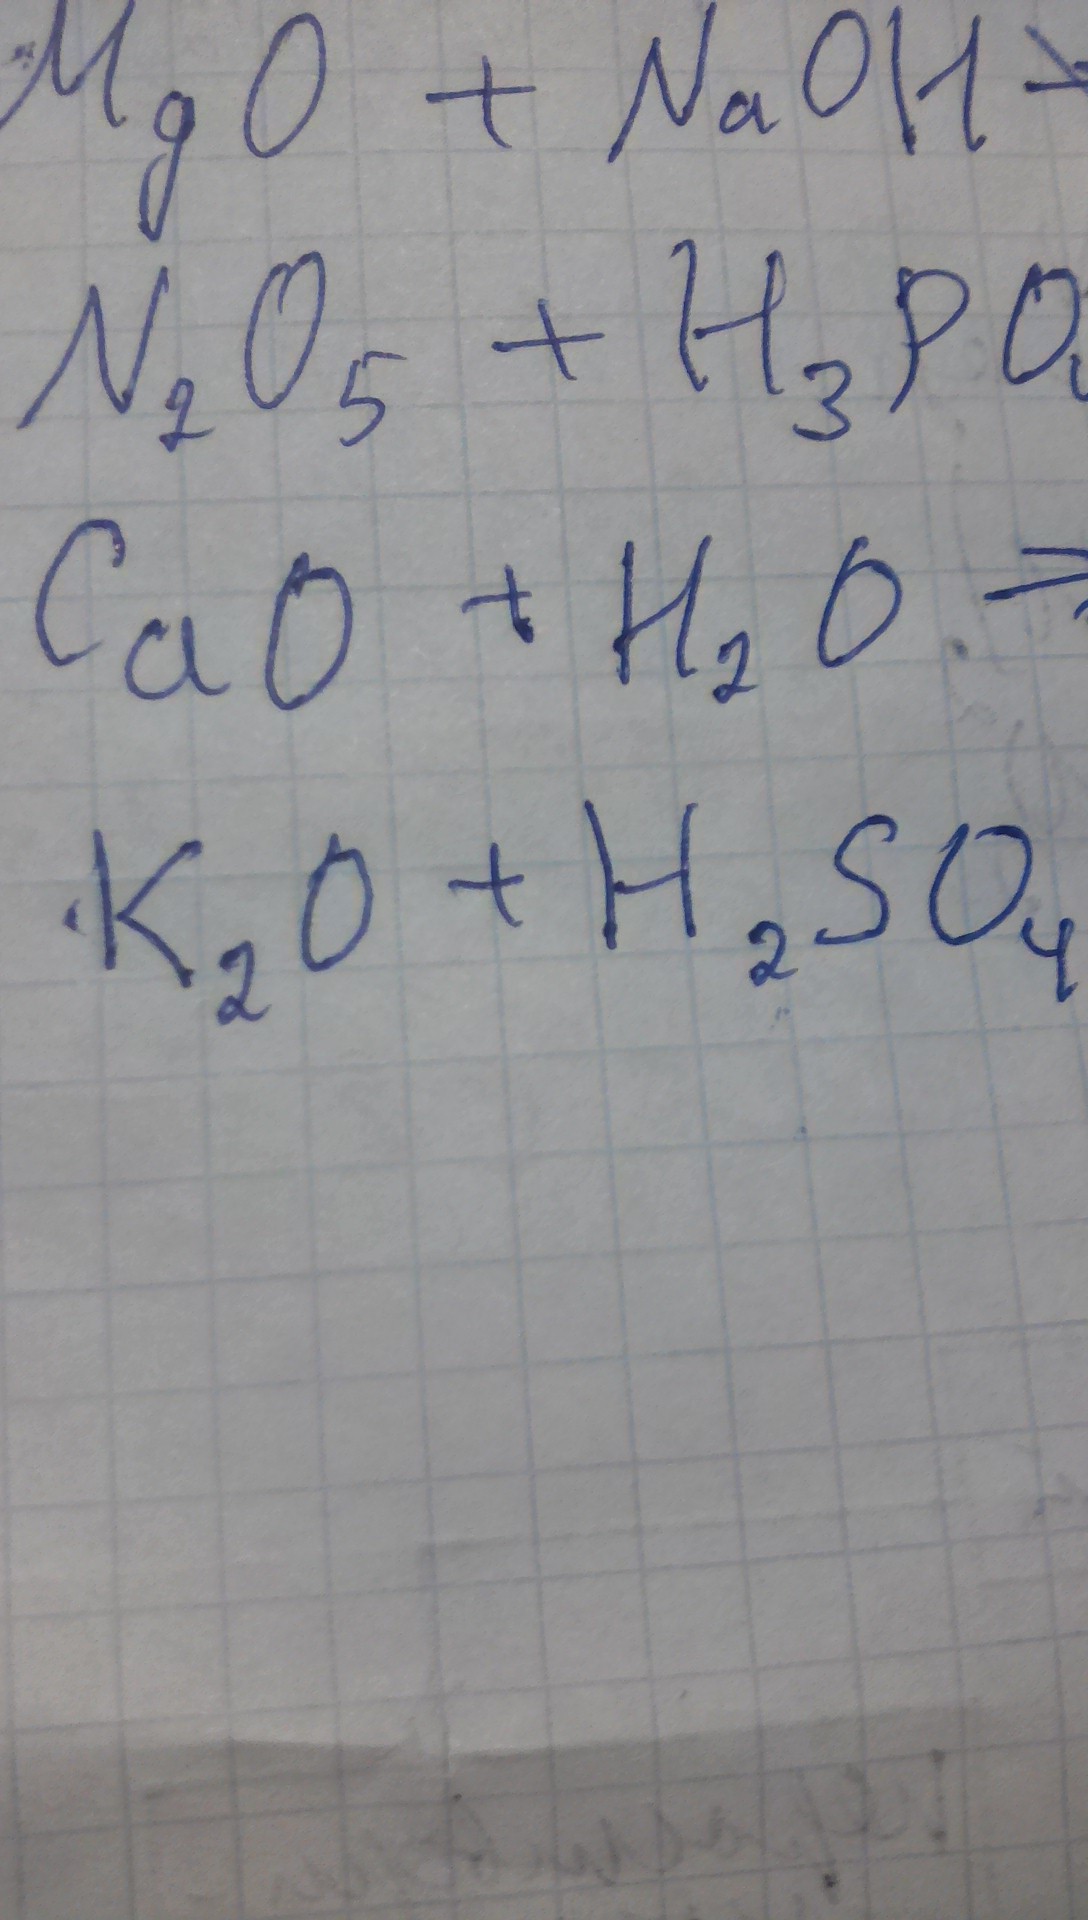 MgO + NaOH →
N₂O₅ + H₃PO₄
CaO + H₂O →
K₂O + H₂SO₄